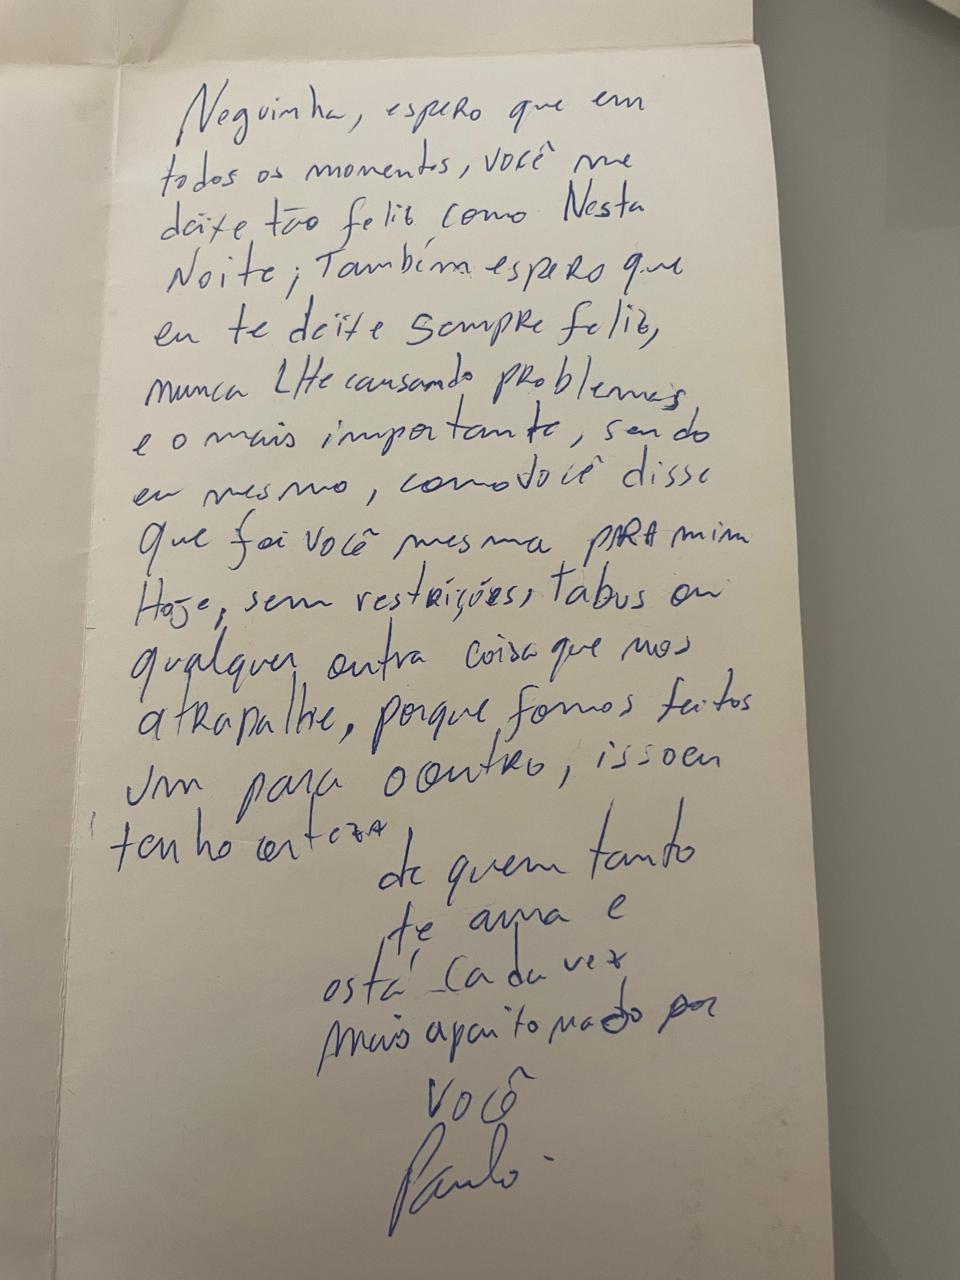 Neguinha, espero que em
todos os momentos, você me
deixe tão feliz como Nesta
Noite; Também espero que
eu te deixe sempre feliz,
nunca lhe causando problemas,
e o mais importante, sendo
eu mesmo, como você disse
que foi você mesma PARA mim
Hoje, sem restrições, tabus ou
qualquer outra coisa que nos
atrapalhe, porque fomos feitos
um para o outro, isso eu
tenho certeza,
de quem tanto
te ama e
está cada vez
mais apaixonado por
você
Paulo.